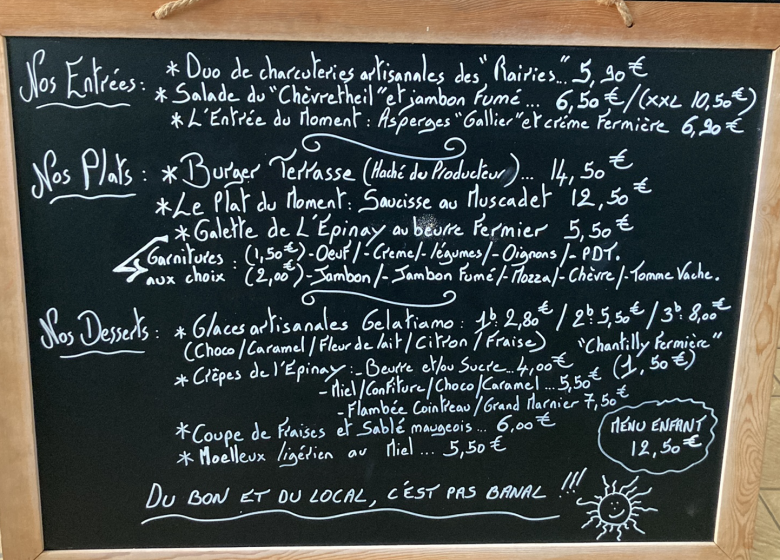 Nos Entrées : * Duo de charcuteries artisanales des "Rairies"... 5,90€
* Salade du "Chèvretheil" et jambon Fumé ... 6,50€/(XXL 10,50€)
* L'Entrée du Moment : Asperges "Gallier" et crème Fermière 6,90€
Nos Plats : * Burger Terrasse (Haché du Producteur)... 14,50€
* Le Plat du Moment : Saucisse au Muscadet 12,50€
* Galette de L'Epinay au beurre Fermier 5,50€
Garnitures aux choix : (1,50€) - Oeuf/- Creme/- légumes/- Oignons/- PDT.
(2,00€) - Jambon/- Jambon Fumé/- Mozza/- Chèvre/- Tomme Vache.
Nos Desserts : * Glaces artisanales Gelatiamo : 1b: 2,80€ / 2b: 5,50€ / 3b: 8,00€
(Choco/Caramel/Fleur de lait/Citron/Fraise) "Chantilly Fermière"
(1,50€)
* Crêpes de l'Epinay : - Beurre et/ou Sucre... 4,00€
- Miel/Confiture/Choco/Caramel ... 5,50€
- Flambée Cointreau/Grand Marnier 7,50€
* Coupe de Fraises et Sablé maugeois ... 6,00€
* Moelleux ligérien au Miel ... 5,50€
MENU ENFANT
12,50€
DU BON ET DU LOCAL, C'EST PAS BANAL !!!